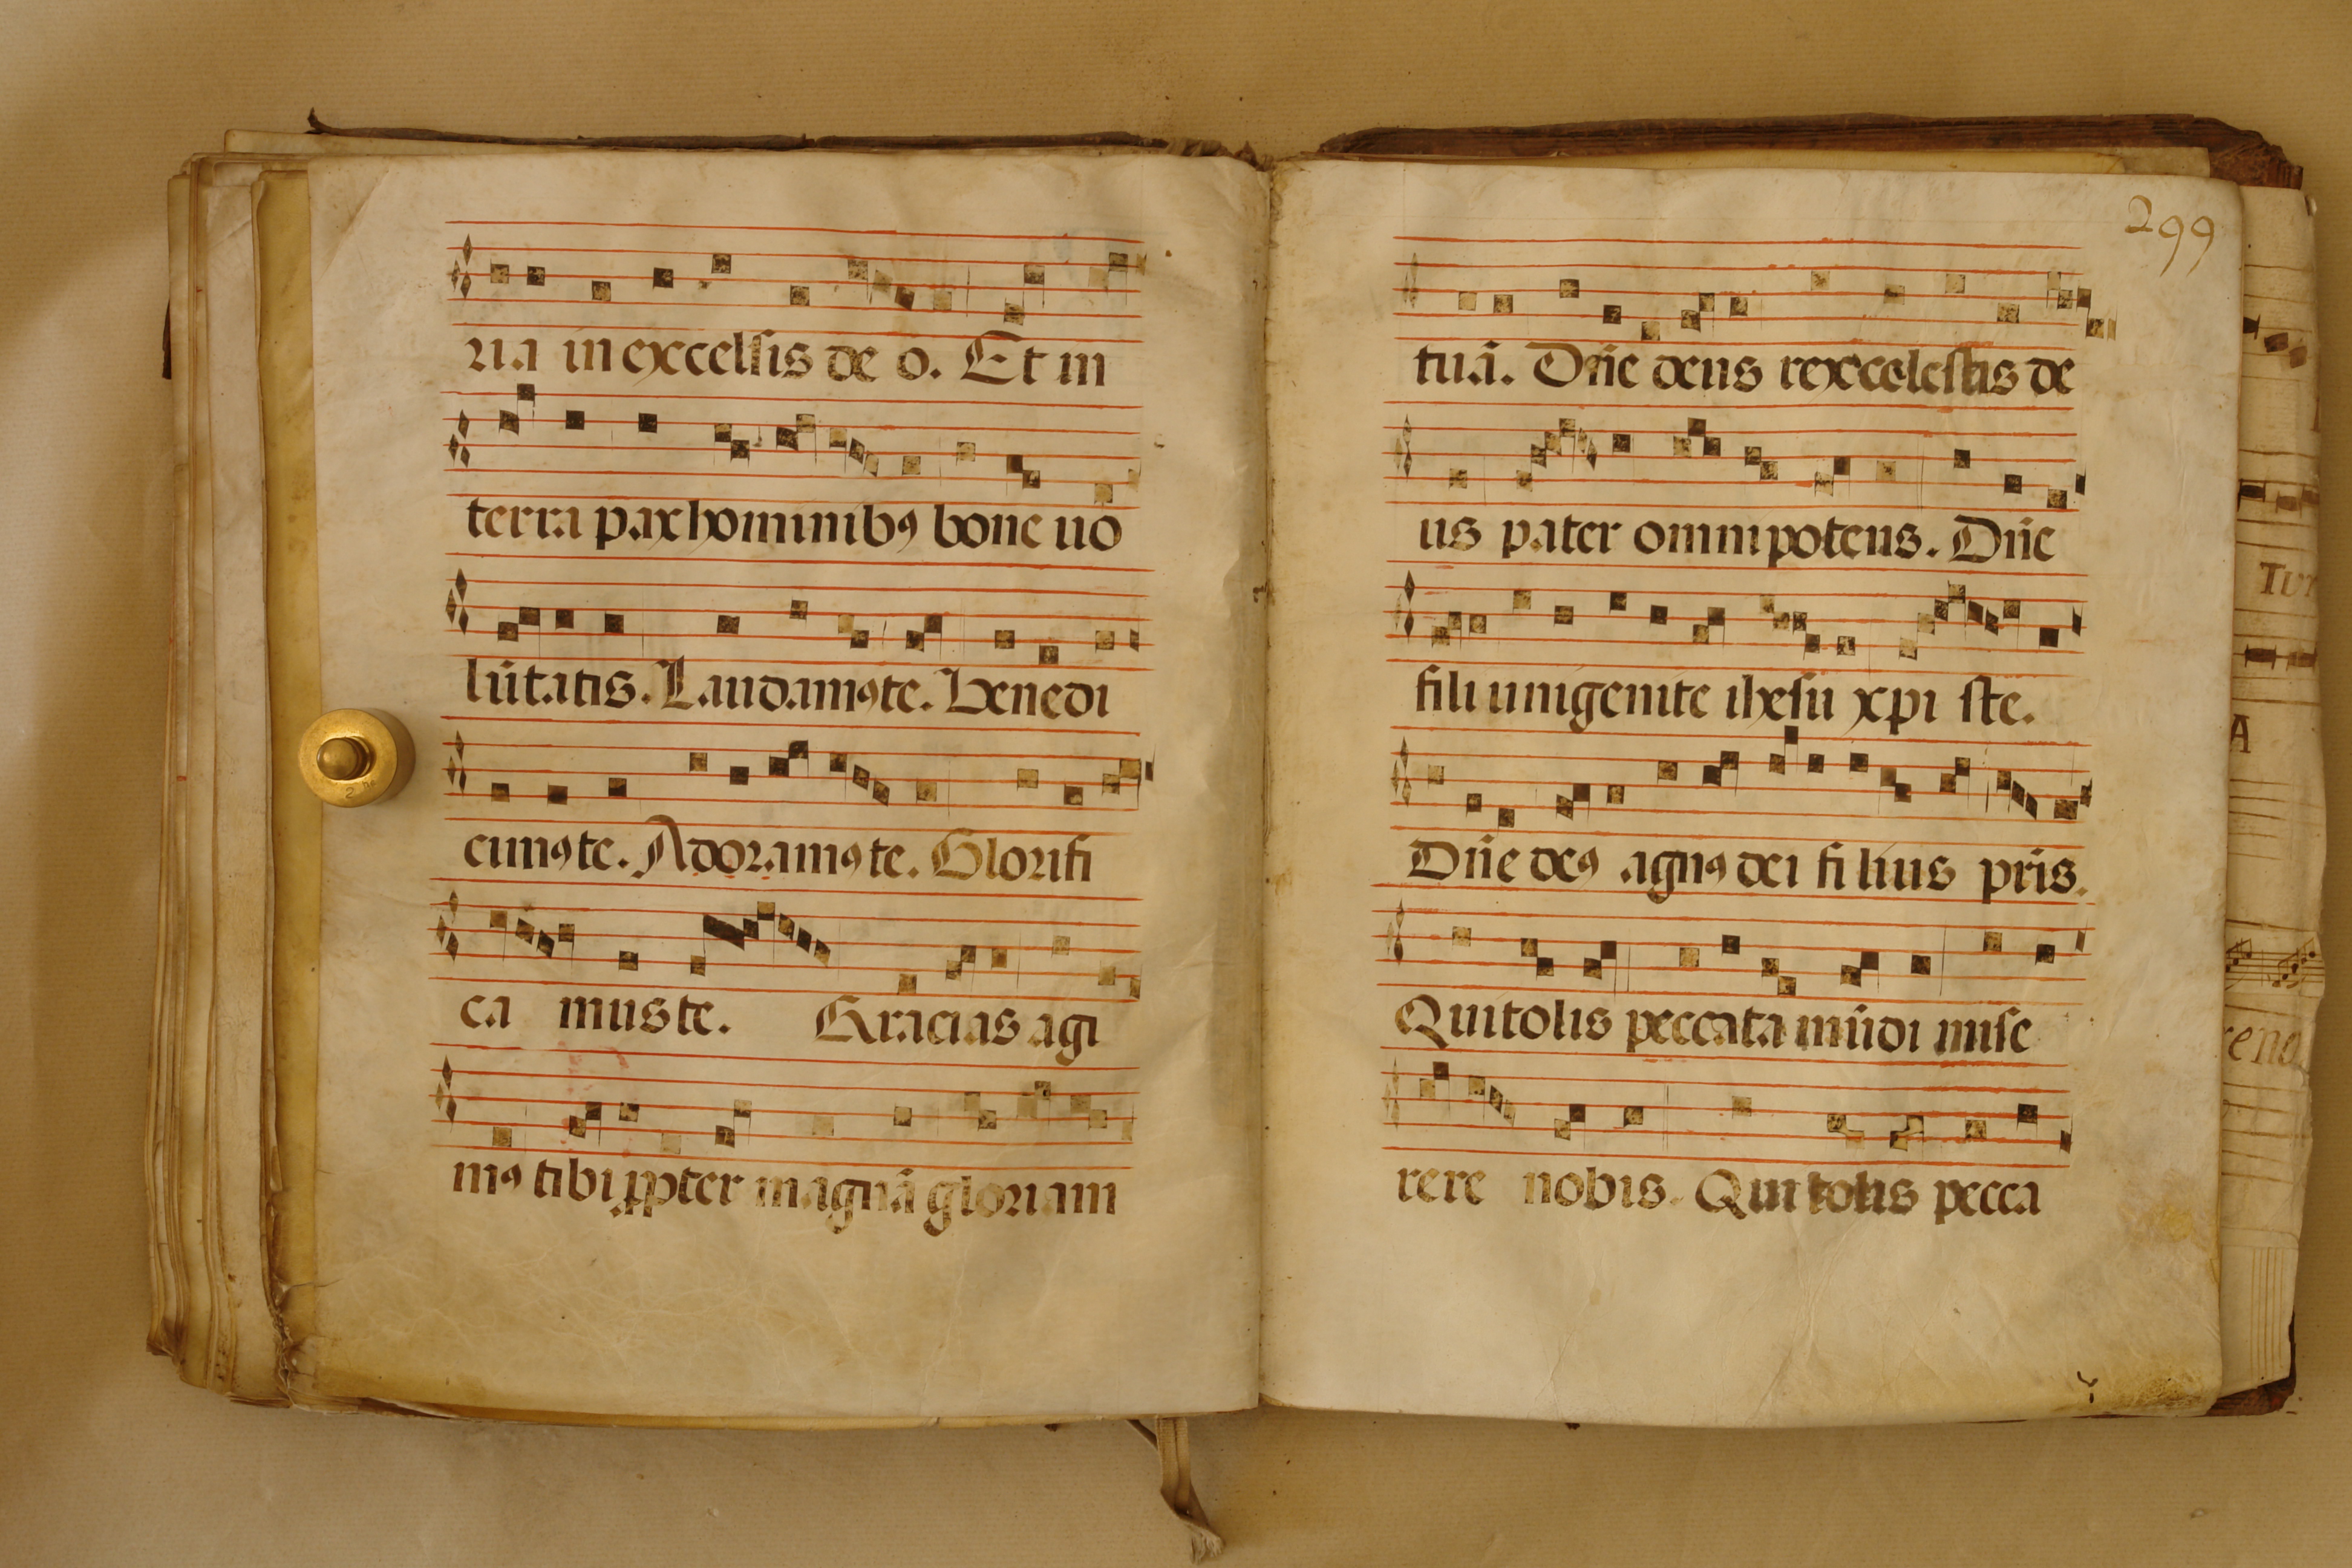 ria in excelsis de o. Et in
terra pax hominibꝰ bone uo
lūtatis. Laudamꝰ te. Benedi
cimꝰ te. Adoramꝰ te. Glorifi
ca mus te. Gracias agi
mꝰ tibi ꝓpter magnā gloriam
299
tuā. Dn̄e deus rex celestis de
us pater omnipotens. Dn̄e
fili unigenite ihesu xpi ste.
Dn̄e deꝰ agnꝰ dei fi lius pr̄is.
Qui tolis peccata mūdi mise
rere nobis. Qui tolis pecca
A